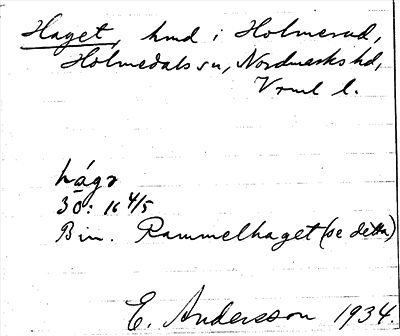 Haget, hmd i Holmerud,
Holmedals sn, Nordmarks hd,
Vrml l.
hágə
30: 16 4/5
Bin. Rammelhaget (se detta)
E. Andersson 1934.